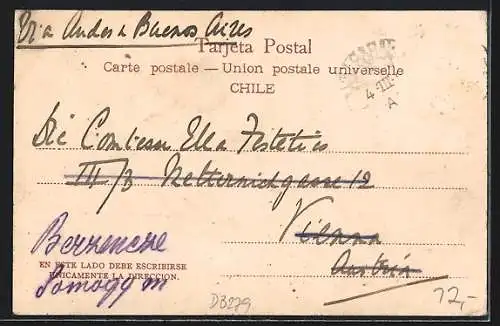 Via Andes a Buenos Aires
Tarjeta Postal
Carte postale — Union postale universelle
CHILE
4 VIII
A
Die Comtesse Ella Festetics
III/3 Metternichgasse 12
Vienna
Austria
Berzencze
EN ESTE LADO DEBE ESCRIBIRSE
ÚNICAMENTE LA DIRECCION.
Somogy m
DB279
12,-